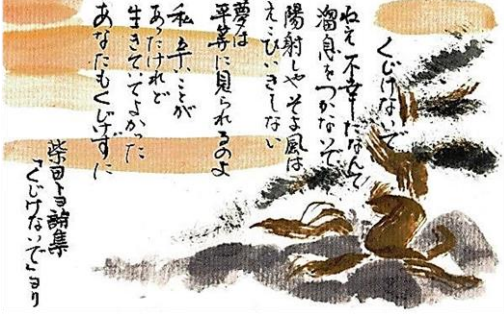 くじけないで
ねえ不幸だなんて
溜息をつかないで
陽射しやそよ風は
えこひいきしない
夢は
平等に見られるのよ
私 辛いことが
あったけれど
生きていてよかった
あなたもくじけずに
柴田トヨ詩集
「くじけないで」ヨリ